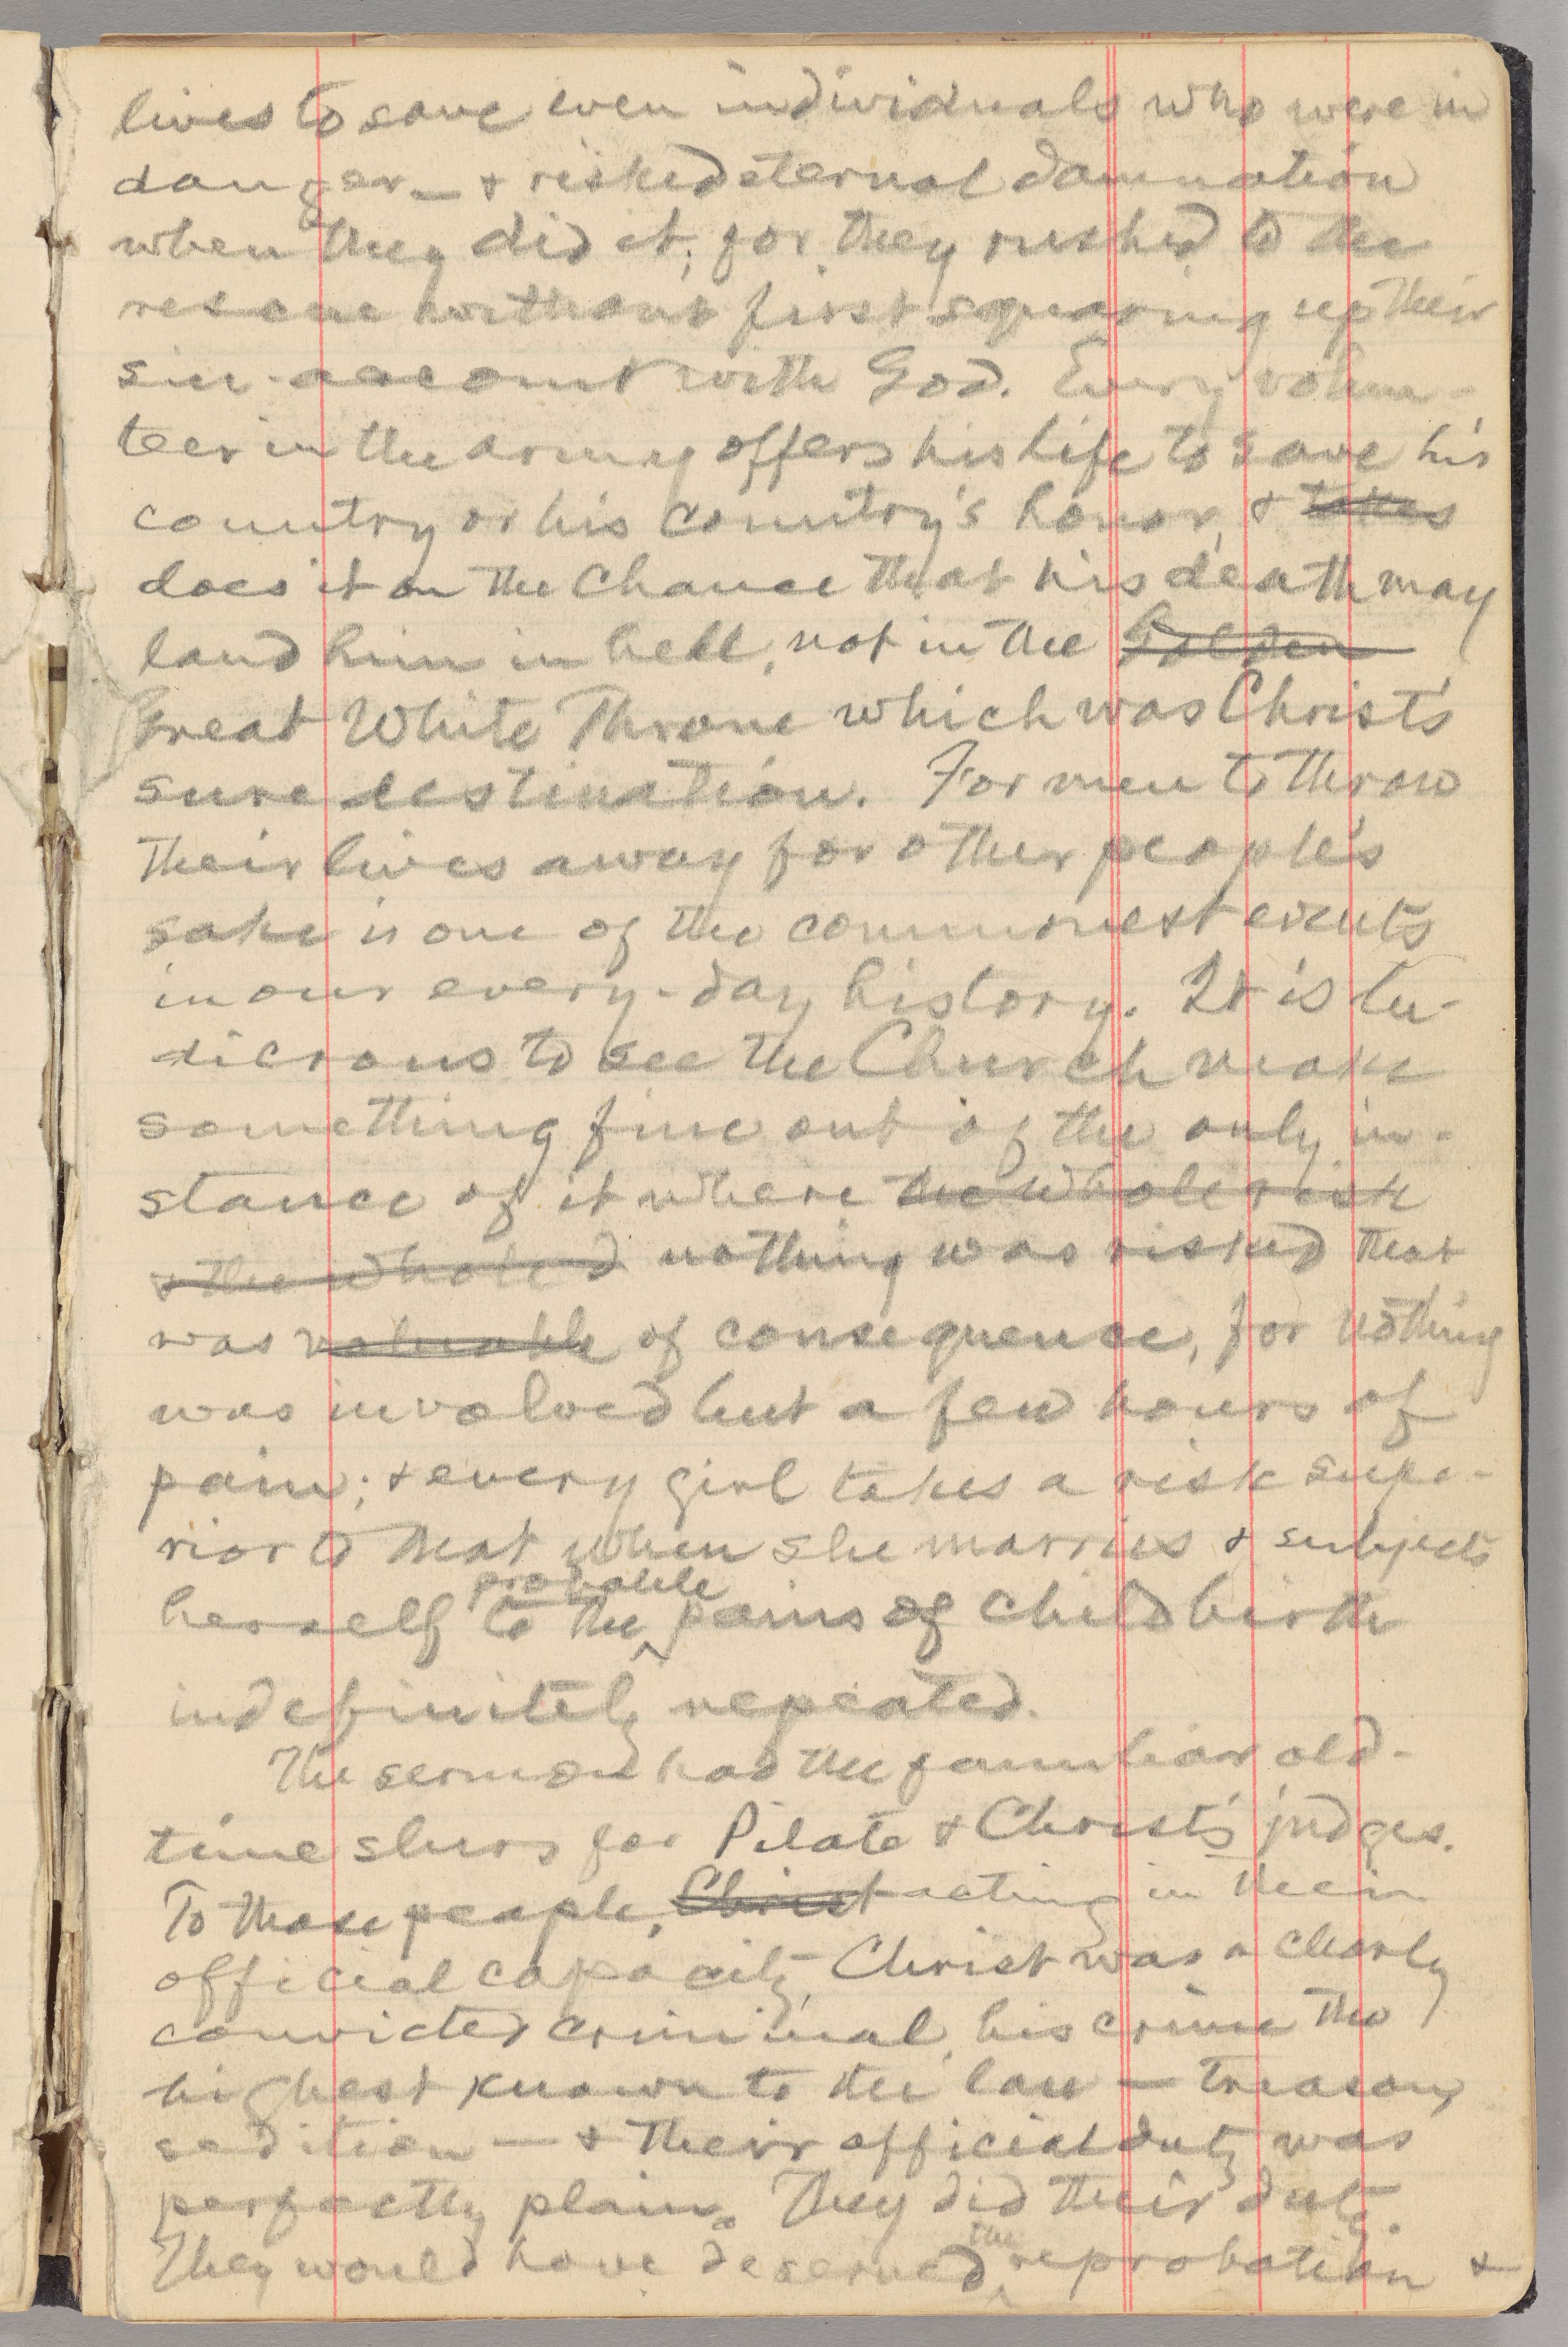 lives to save even individuals who were in
danger — & risked eternal damnation
when they did it; for they rushed to the
rescue without first squaring up their
sin-account with God. Every volun-
teer in the army offers his life to save his
country or his country's honor, & takes
does it on the chance that his death may
land him in hell, not in the Golden
Great White Throne which was Christ's
sure destination. For men to throw
their lives away for other people's
sake is one of the commonest events
in our every-day history. It is lu-
dicrous to see the Church make
something fine out of the only in-
stance of it where the whole risk
& the whole d nothing was risked that
was valuable of consequence, for nothing
was involved but a few hours of
pain; & every girl takes a risk supe-
rior to that when she marries & subjects
herself to the probable pains of childbirth
indefinitely repeated.
The sermon had the familiar old-
time slurs for Pilate & Christ's judges.
To those people, Christ acting in their
official capacity, Christ was a clearly
convicted criminal, his crime the
highest known to the law — treason,
sedition — & their official duty was
perfectly plain. They did their duty.
They would have deserved the reprobation &